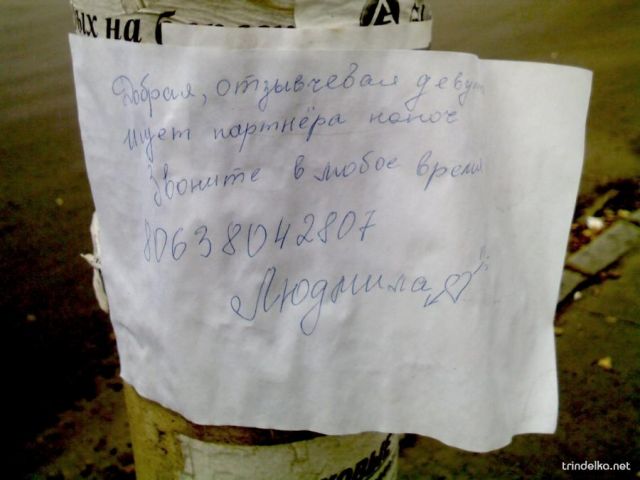 ых на б
Добрая, отзывчевая девуш
ищет партнёра на ноч
Звоните в любое время
80638042807
Людмила
ковье
trindelko.net